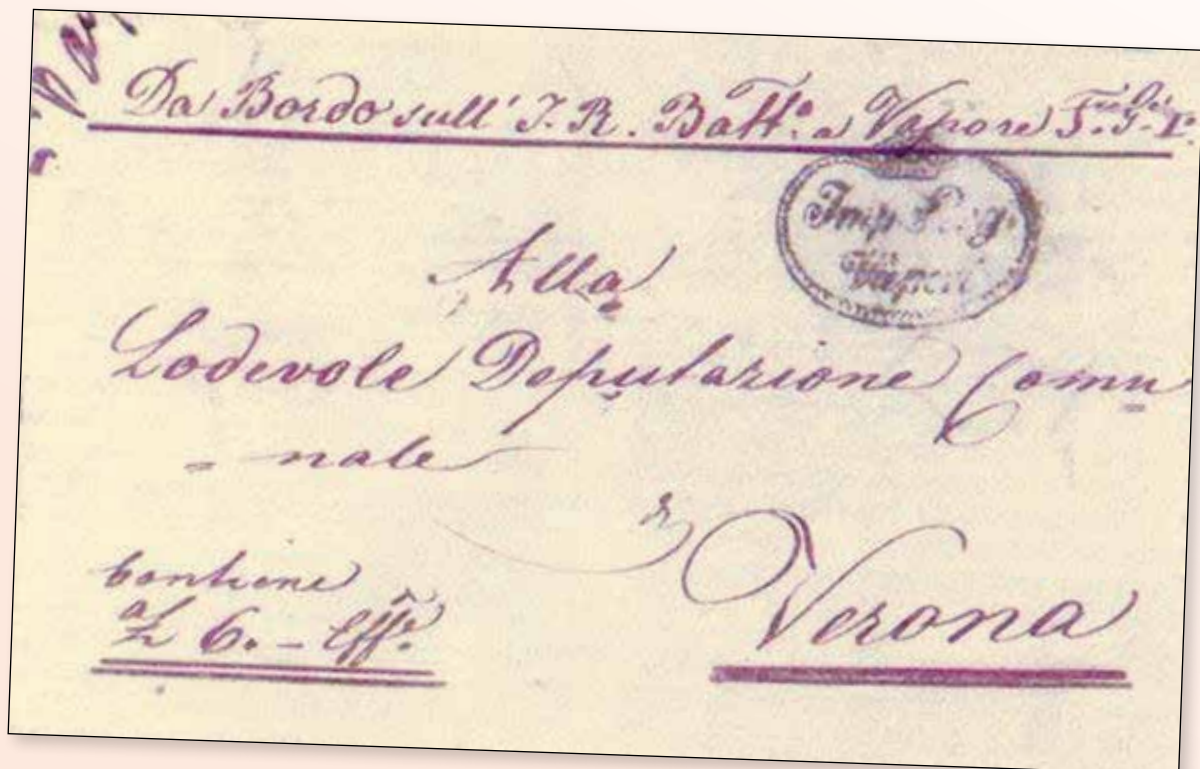 Da Bordo sull' I. R. Batt.o a Vapore
Imp. Reg.
Vapori
Alla
Lodevole Deputazione Comu
= nale
di
Verona
Contiene
a£ 6. - Eff.e